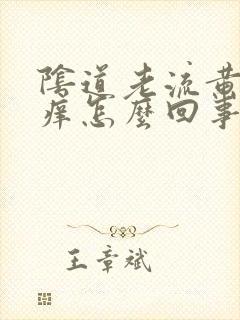 陰道老流黃
痒怎麼回事
王章斌